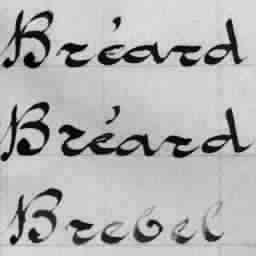 Bréard
Bréard
Brebel